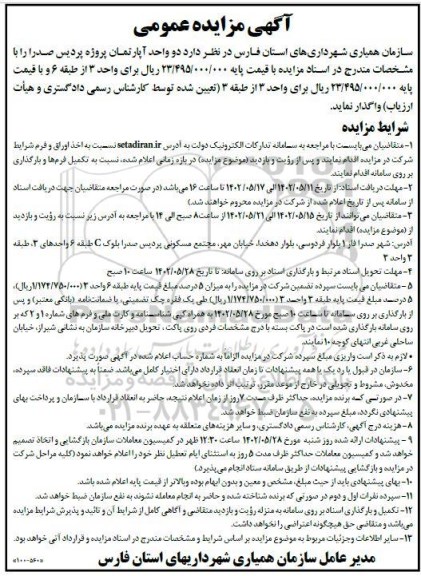 آگهی مزایده عمومی
سازمان همیاری شهرداری‌های استان فارس در نظر دارد دو واحد آپارتمان پروژه پردیس صدرا را با
مشخصات مندرج در اسناد مزایده با قیمت پایه ۲۳/۴۹۵/۰۰۰/۰۰۰ ریال برای واحد ۳ از طبقه ۶ و با قیمت
پایه ۲۳/۴۹۵/۰۰۰/۰۰۰ ریال برای واحد ۳ از طبقه ۳ (تعیین شده توسط کارشناس رسمی دادگستری و هیأت
ارزیاب) واگذار نماید.
شرایط مزایده
۱- متقاضیان می‌بایست با مراجعه به سامانه تدارکات الکترونیک دولت به آدرس setadiran.ir نسبت به اخذ اوراق و فرم شرایط
شرکت در مزایده اقدام نمایند و پس از رؤیت و بازدید (موضوع مزایده) در بازه زمانی اعلام شده، نسبت به تکمیل فرم‌ها و بارگذاری
بر روی سامانه اقدام نمایند.
۲- مهلت دریافت اسناد: از تاریخ ۱۴۰۲/۰۵/۱۱ تا ۱۴۰۲/۰۵/۱۷ تا ساعت ۱۶ می‌باشد (در صورت مراجعه متقاضیان جهت دریافت اسناد
از سامانه پس از تاریخ اعلام شده از شرکت در مزایده محروم خواهند شد.)
۳- متقاضیان می‌توانند از تاریخ ۱۴۰۲/۰۵/۱۵ الی ۱۴۰۲/۰۵/۲۱ از ساعت ۸ صبح الی ۱۴ با مراجعه به آدرس زیر نسبت به رؤیت و بازدید
از (موضوع مزایده) اقدام نمایند.
آدرس: شهر صدرا فاز ۱ بلوار فردوسی، بلوار دهخدا، خیابان مهر، مجتمع مسکونی پردیس صدرا بلوک C طبقه ۶ واحدهای ۳، طبقه
۳ واحد ۳
۴- مهلت تحویل اسناد مرتبط و بارگذاری اسناد بر روی سامانه: تا تاریخ ۱۴۰۲/۰۵/۲۸ تا ساعت ۱۰ صبح
۵- متقاضیان می بایست سپرده تضمین شرکت در مزایده را به میزان ۵ درصد مبلغ قیمت پایه طبقه ۶ واحد ۳ (۱/۱۷۴/۷۵۰/۰۰۰ ریال)،
۵ درصد مبلغ قیمت پایه طبقه ۳ واحد ۳ (۱/۱۷۴/۷۵۰/۰۰۰ ریال) طی یک فقره چک تضمینی، یا ضمانت‌نامه (بانکی معتبر) و پس
از بارگذاری بر روی سامانه تا ساعت ۱۰ صبح مورخ ۱۴۰۲/۰۵/۲۸ به همراه کپی شناسنامه و کارت ملی و فرم های شماره ۱ و ۲ که بر
روی سامانه بارگذاری شده است در پاکت بسته با درج مشخصات فردی روی پاکت ، تحویل دبیرخانه سازمان به نشانی شیراز، خیابان
ساحلی غربی انتهای کوچه ۱۰ نمایند.
• لازم به ذکر است واریزی مبلغ سپرده شرکت در مزایده الزاما به شماره حساب اعلام شده در آگهی صورت پذیرد.
۶- سازمان در قبول یا رد یک یا همه پیشنهادات تا زمان انعقاد قرارداد دارای اختیار کامل می‌باشد ضمنا به پیشنهادات فاقد سپرده،
مخدوش، مشروط و تحویلی در خارج از موعد مقرر، ترتیب اثر داده نخواهد شد.
۷- در صورتی که برنده مزایده، حداکثر ظرف مدت ۷ روز از زمان اعلام نتیجه، حاضر به انعقاد قرارداد با سازمان و پرداخت بهای
پیشنهادی نگردد، مبلغ سپرده به نفع سازمان ضبط خواهد شد.
۸- هزینه درج آگهی، کارشناس رسمی دادگستری، و سایر هزینه‌های متعلقه به عهده برنده مزایده می‌باشد.
۹- پیشنهادات ارائه شده روز شنبه مورخ ۱۴۰۲/۰۵/۲۸ ساعت ۱۲:۳۰ ظهر در کمیسیون معاملات سازمان بازگشایی و اتخاذ تصمیم
خواهد شد و کمیسیون معاملات حداکثر ظرف مدت ۵ روز به استثنای ایام تعطیل نظر خود را اعلام خواهد نمود (کلیه مراحل شرکت
در مزایده و بازگشایی پیشنهادات از طریق سامانه ستاد انجام می‌پذیرد.)
۱۰- بهای پیشنهادی باید از حیث مبلغ، مشخص و معین و بدون ابهام بوده و بالاتر از قیمت پایه اعلام شده باشد.
۱۱- سپرده نفرات اول و دوم در صورتی که برنده شناخته شده و حاضر به انجام معامله نشوند به نفع سازمان ضبط خواهد شد.
۱۲- تکمیل و بارگذاری اسناد بر روی سامانه به منزله رؤیت و بازدید متقاضی و آگاهی کامل از شرایط آن و تائید و پذیرش شرایط مزایده
می‌باشد و متقاضی حق هیچگونه اعتراضی را نخواهد داشت.
۱۳- سایر اطلاعات و جزئیات مربوط به موضوع مزایده بر اساس شرایط و مشخصات مندرج در اسناد مزایده و قرارداد آتی خواهد بود.
مدیر عامل سازمان همیاری شهرداریهای استان فارس
«۱۰۰-۵۶۰»